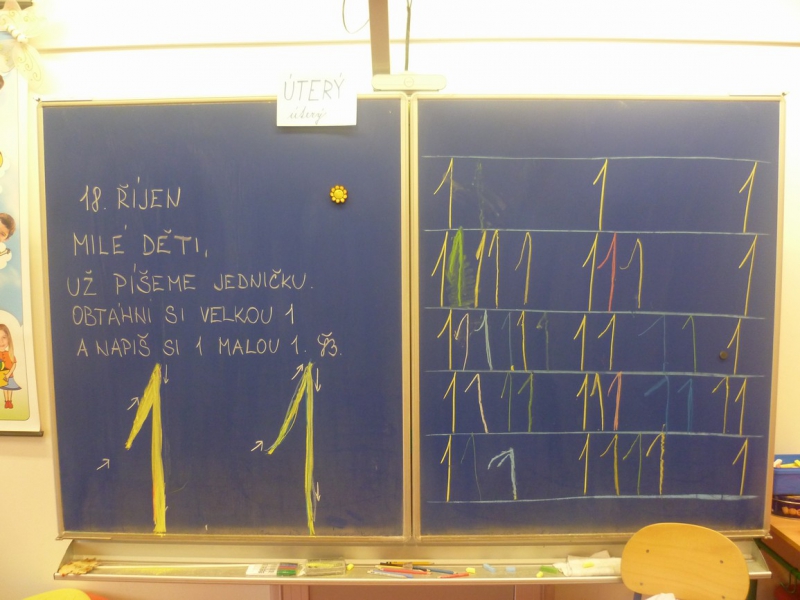 ÚTERÝ
úterý
18. ŘÍJEN
MILÉ DĚTI,
UŽ PÍŠEME JEDNIČKU.
OBTÁHNI SI VELKOU 1
A NAPIŠ SI 1 MALOU 1.
1 1
1 1 1
1 1 1 1 1 1 1 1 1
1 1 1 1 1 1 1 1 1 1 1
1 1 1 1 1 1 1 1 1 1 1
1 1 1 1 1 1 1 1